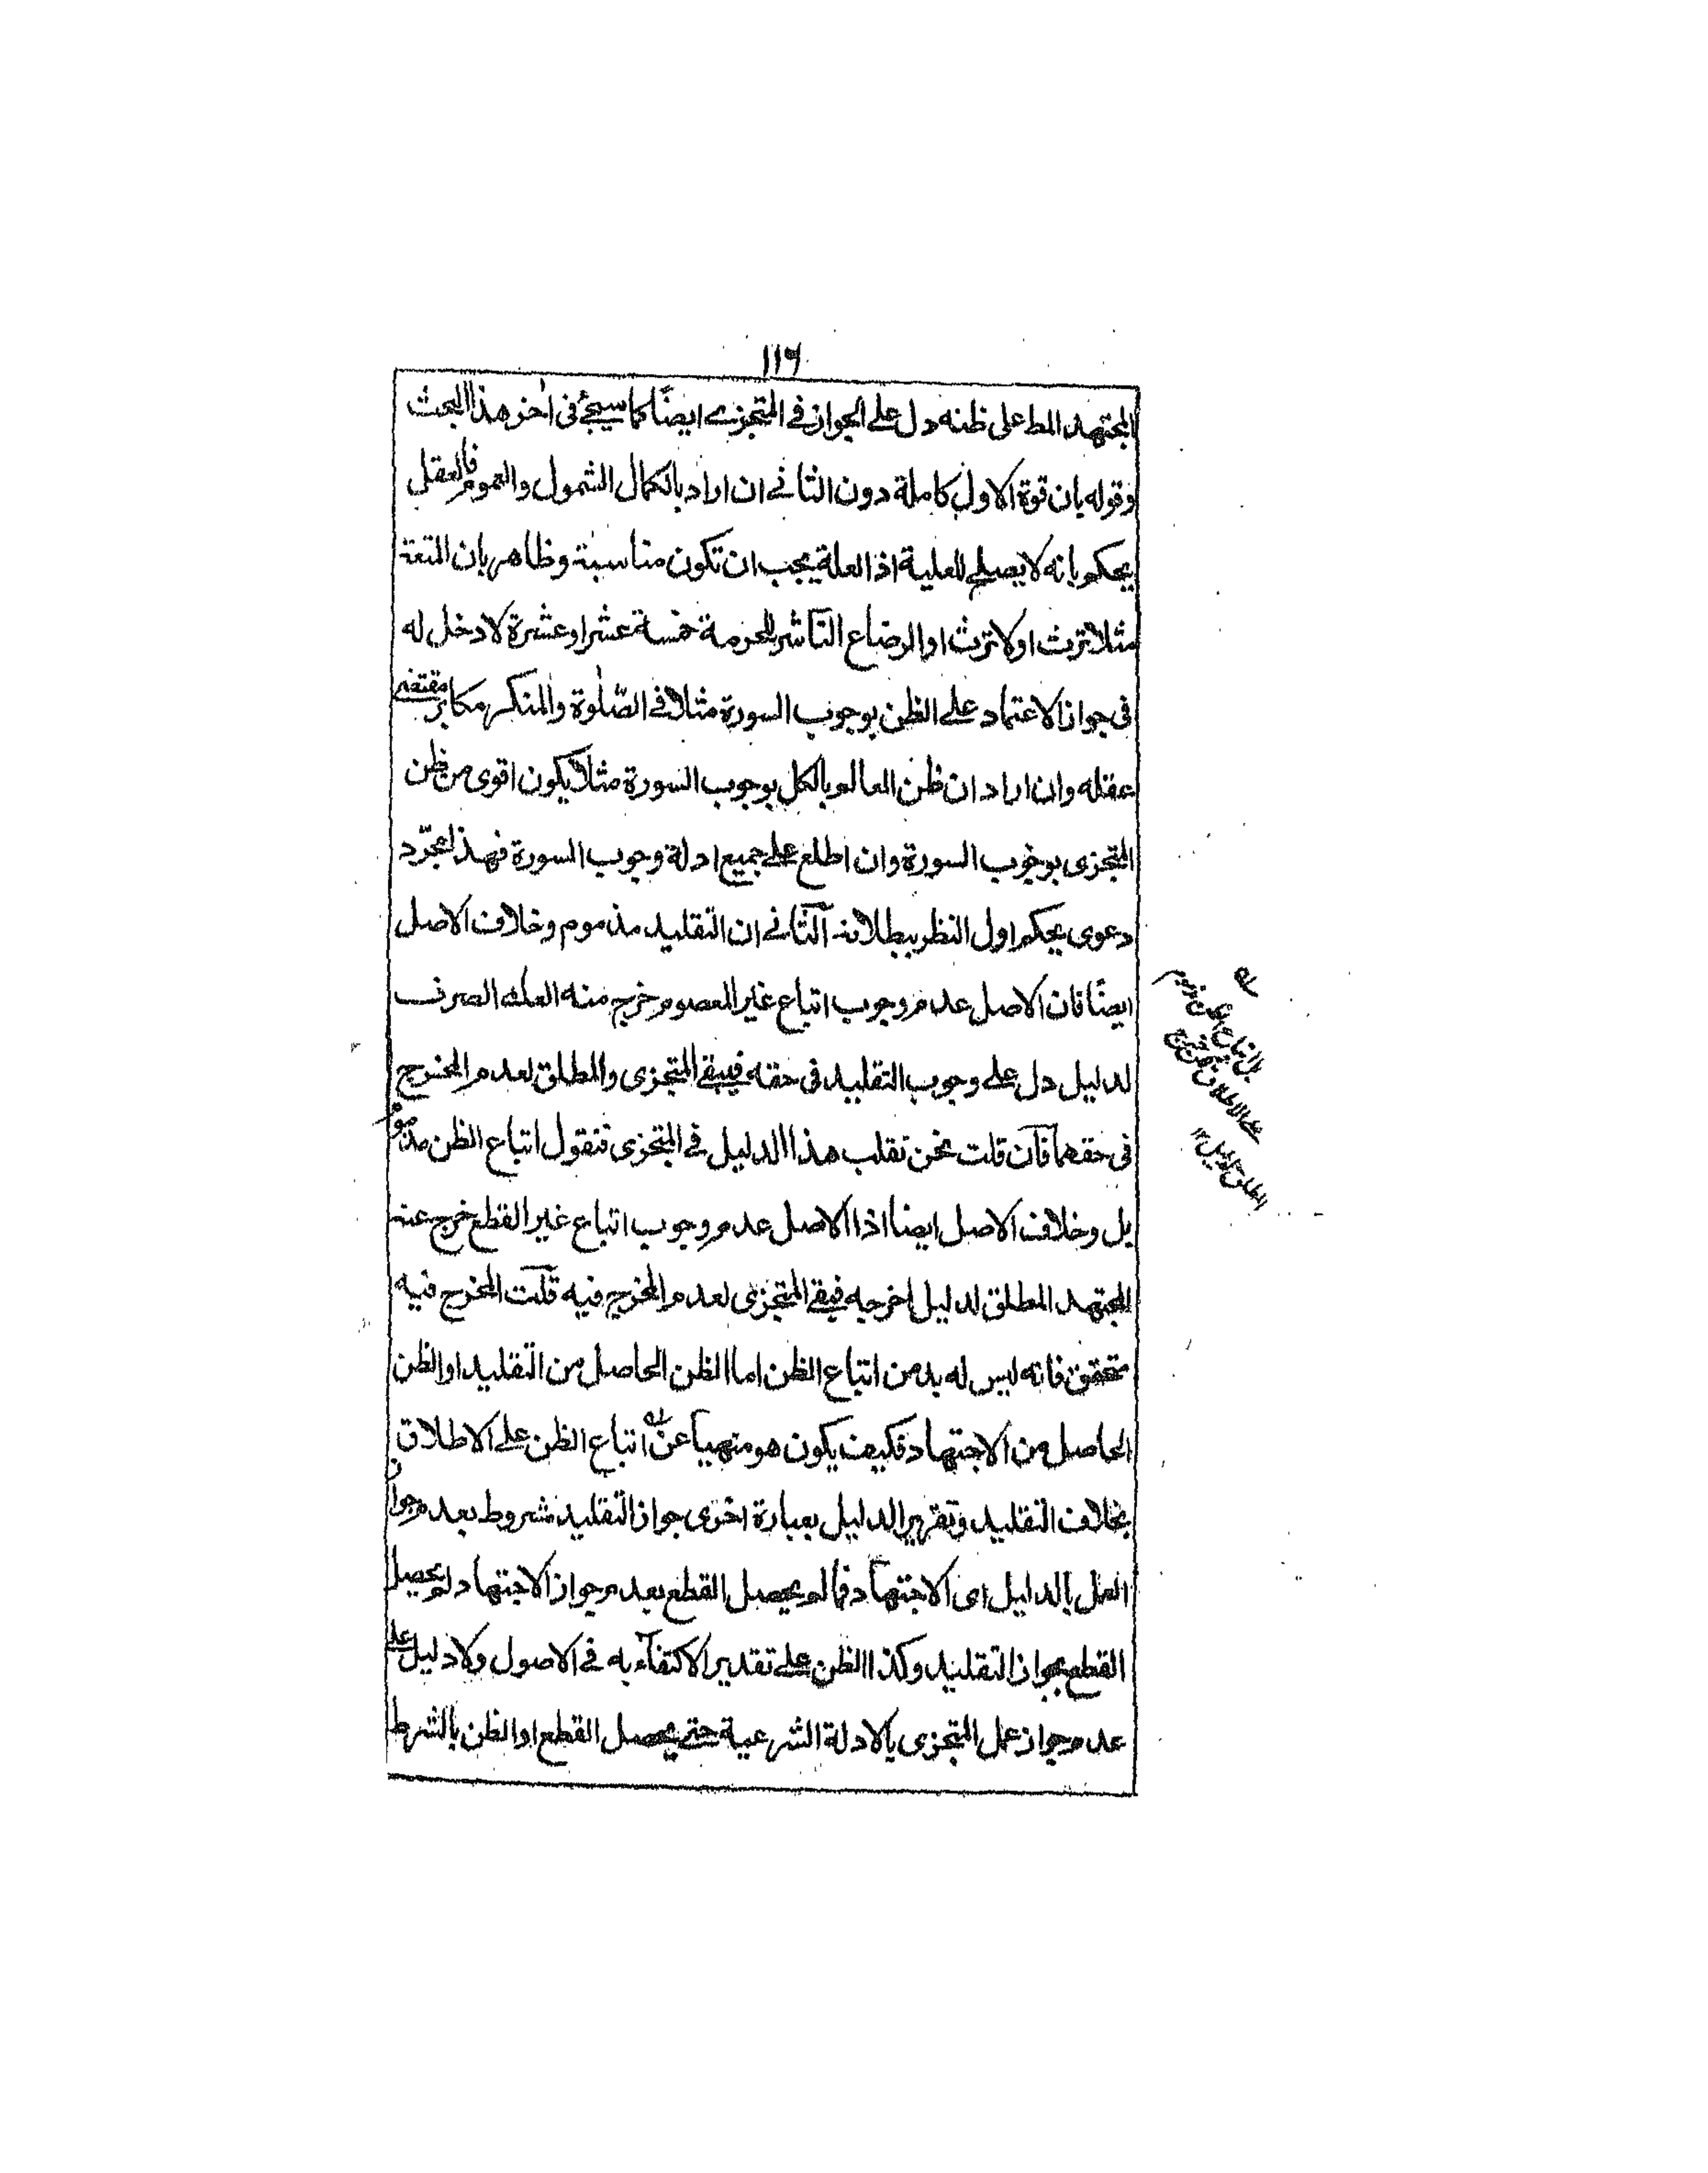 ١١٦
المجتهد المط على ظنه دل على الجواز في المتجزي ايضًا كما سيجئ في اٰخر هذا البحث
وقوله بان قوة الاول كاملة دون الثاني ان اراد بالكمال الشمول والعموم فالعقل
يحكم بانه لا يصلح للعلية اذ العلة يجب ان تكون مناسبة وظاهر بان المتعة
مثلا ترث او لا ترث او الرضاع الناشر للحرمة خمسة عشر او عشرة لا دخل له
في جواز الاعتماد على الظن بوجوب السورة مثلا في الصّلٰوة والمنكر مكابر مقتضى
عقله وان اراد ان ظن العالم بالكل بوجوب السورة مثلا يكون اقوى من ظن
المتجزى بوجوب السورة وان اطلع على جميع ادلة وجوب السورة فهذا مجرّد
دعوى يحكم اول النظر ببطلانه الثاني ان التقليد مذموم وخلاف الاصل
ايضًا فان الاصل عدم وجوب اتباع غير المعصوم خرج منه العامى الصرف
لدليل دل على وجوب التقليد في حقه فيبقى المتجزى والمطلق لعدم المخرج
في حقهما فان قلت نحن نقلب هذا الدليل في المتجزى فنقول اتباع الظن مذموم
بل وخلاف الاصل ايضا اذا الاصل عدم وجوب اتباع غير القطع خرج عنه
المجتهد المطلق لدليل اخرجه فيبقى المتجزى لعدم المخرج فيه قلت المخرج فيه
متحقق فانه ليس له بد من اتباع الظن اما الظن الحاصل من التقليد او الظن
الحاصل من الاجتهاد فكيف يكون هو منهيا عن اتباع الظن على الاطلاق
بخلاف التقليد وتقرير الدليل بعبارة اخرى جواز التقليد مشروط بعدم جواز
العمل بالدليل اى الاجتهاد فما لم يحصل القطع بعدم جواز الاجتهاد لم يحصل
القطع بجواز التقليد وكذا الظن على تقدير الاكتفاء به في الاصول ولا دليل على
عدم جواز عمل المتجزى بالادلة الشرعية حتى يحصل القطع او الظن بالشرط